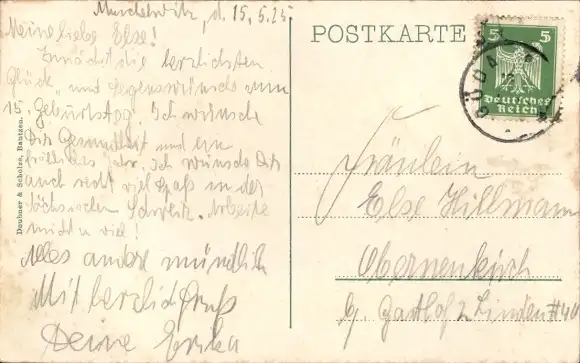 Muschelwitz, d. 15.5.25
Meine liebe Else!
Zunächst die herzlichsten
Glück und Segenswünsche zum
15. Geburtstag. Ich wünsche
Dir Gesundheit und ein
fröhliches Jahr. Ich wünsche Dir
auch recht viel Spaß in der
sächsischen Schweiz. Arbeite
nicht zu viel!
Alles andre mündlich
Mit herzlich Gruß
Deine Erika
Deubner & Scholze, Bautzen.
POSTKARTE
5 5
Deutsches
Reich
Fräulein
Else Hillmann
Obernenkirch
G. Gasthof z Linden #40